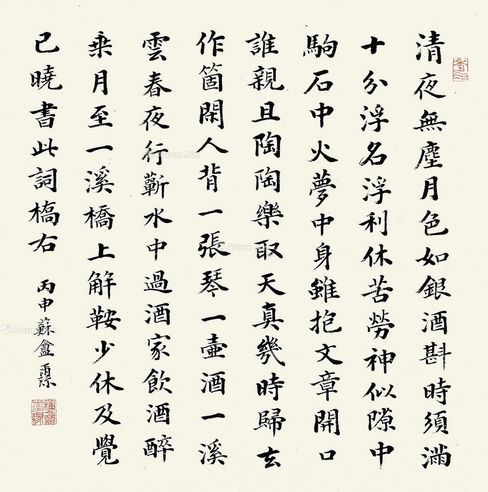 清夜無塵月色如銀酒斟時須滿
十分浮名浮利休苦勞神似隙中
駒石中火夢中身雖抱文章開口
誰親且陶陶樂取天真幾時歸去
作箇閑人背一張琴一壺酒一溪
雲春夜行蘄水中過酒家飲酒醉
乘月至一溪橋上解鞍少休及覺
已曉書此詞橋右
丙申蘇盦